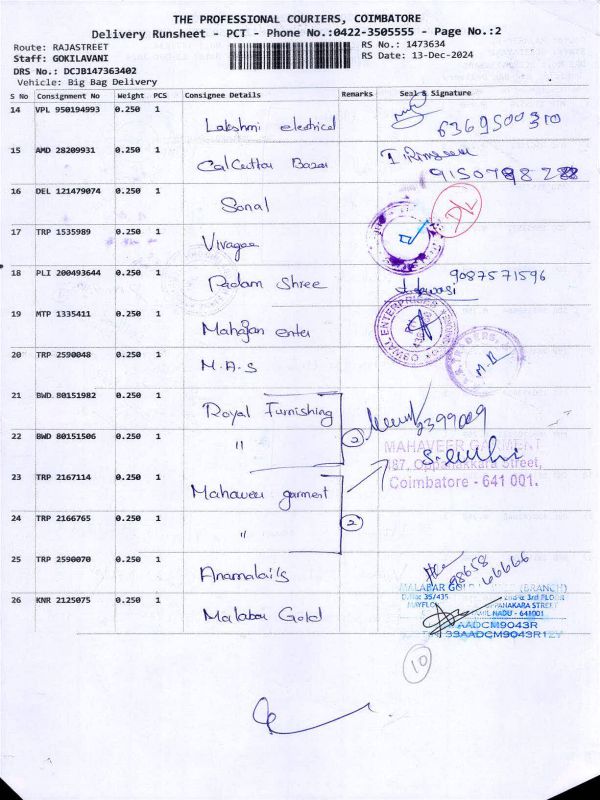 THE PROFESSIONAL COURIERS, COIMBATORE
Delivery Runsheet - PCT - Phone No.:0422-3505555 - Page No.:2
Route: RAJASTREET
RS No.: 1473634
Staff: GOKILAVANI
RS Date: 13-Dec-2024
DRS No.: DCJB147363402
Vehicle: Big Bag Delivery
S No Consignment No Weight PCS Consignee Details Remarks Seal & Signature
14 VPL 950194993 0.250 1 Lakshmi electrical 6369500310
15 AMD 28209931 0.250 1 Calcutta Bazar
16 DEL 121479074 0.250 1 Sonal
17 TRP 1535989 0.250 1 Vivagaa
18 PLI 200493644 0.250 1 Padam Shree 9087571596
19 MTP 1335411 0.250 1 Mahajan enter
OSWAL ENTERPRISES
20 TRP 2590048 0.250 1 M.A.S
21 BWD 80151982 0.250 1 Royal Furnishing
2399009
22 BWD 80151506 0.250 1 "
2
MAHAVEER GARMENT
187, Oppanakkara Street,
Coimbatore - 641 001.
23 TRP 2167114 0.250 1 Mahaveer garment
24 TRP 2166765 0.250 1 "
2
25 TRP 2590070 0.250 1 Anamalai's 98658 66666
MALABAR GOLD (BRANCH)
26 KNR 2125075 0.250 1 Malabar Gold
D.No: 35/435 2nd & 3rd FLOOR
MAYFLOWER OPPANAKARA STREET
TAMIL NADU - 641001
33AADCM9043R1ZY
10